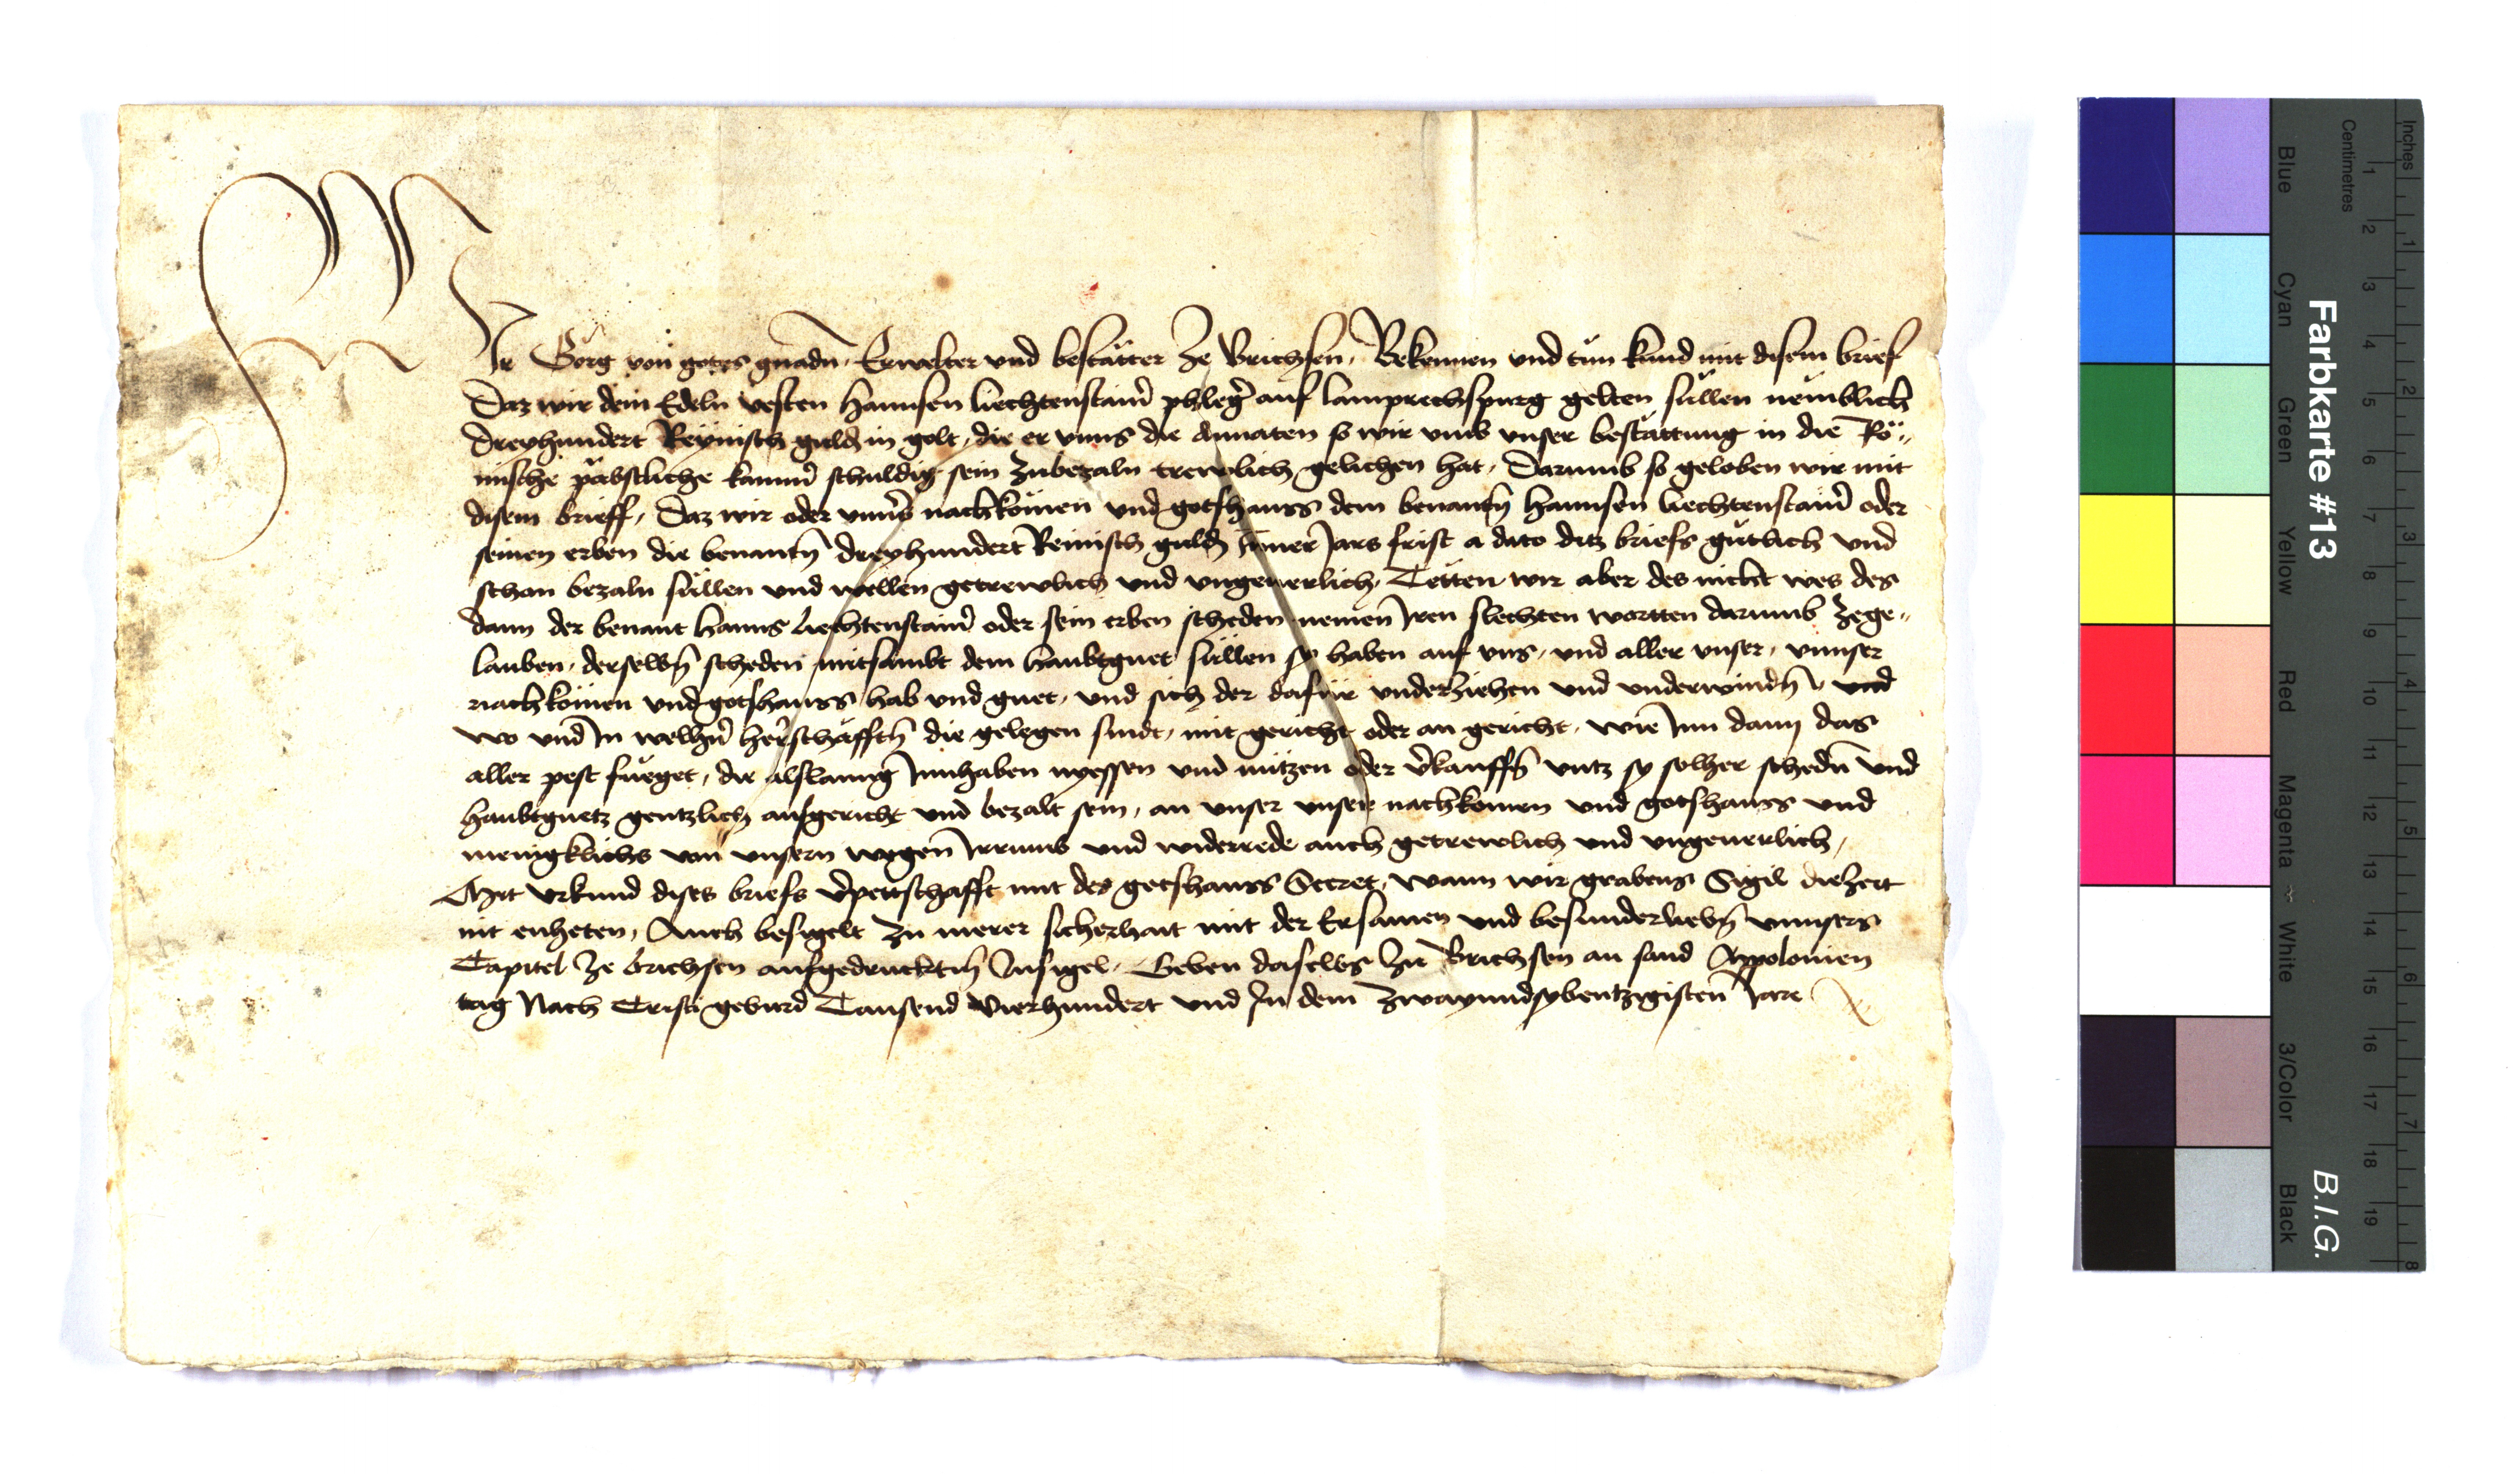 Wir Görg von gotes gnadn̄. Erwelter vnd bestätter ze Brichsen. Bekennen vnd tun kund mit disem brief
Daz wir dem Edeln vesten Hannsen Liechtenstain̄ phleḡ auf Lamprechspurg gelten süllen nemblich
dreyhundert Reynisch guld̄ in golt, die er vnns die Annaten so wir vmb vnser bestättung in die Rö„
mische päbstliche kamm̄ schuldig sein zubezaln trewlich gelichen hat. Darumb so geloben wir mit
disem brieff, Daz wir oder vnns̄ nachkömen vnd gotshauss dem benantn̄ Hannsen Liechtenstain̄ oder
seinen erben die benantn̄ dreyhundert Reinisch guld̄ Inner Jars frist a dato ditz briefs gutlich vnd
schon bezaln süllen vnd wellen getrewlich vnd vngeuerlich, Tetten wir aber des nicht wes des
dann der benant Hanns Liechtenstain̄ oder sein erben scheden nemen Iren slechten wortten darumb zege„
lauben, derselbn̄ scheden mitsambt dem haubtguet süllen sy haben auf vns, vnd aller vnser, vnnser
nachkömen vnd gotshauss hab vnd guet, vnd sich der dafür vnderziehen vnd vnderwindn̄ vnd
wo vnd In welhn̄ herschäfftn̄ die gelegen sindt, mit gericht oder an gericht, wie Inn dann das
aller pest fueget, die alslanng Innhaben nyessen vnd nützen oder v̄kauffn̄ vntz sy solher schedn̄ vnd
haubtguetz gentzlich aufgericht vnd bezalt sein, an vnser vnser nachkomen vnd gotshauss vnd
menigklichs von vnsern wegen Irrumb vnd widerrede auch getrewlich vnd vngeuerlich,
Mit vrkund dises briefs v̄pettschafft mit des gotshauss Secret, wann wir grabens Sigil diezeit
nit enheten, Auch besigelt zu merer sicherhait mit der Ersamen vnd besunderliebn̄ vnnsers
Capitel ze brichsen aufgedrucktn̄ Insigel, Geben daselbs zu Brichsen an sand Appolonien
tag Nach Cristi geburd Tausend Vierhundert vnd In dem zwayundsybentzigisten Jare
Farbkarte #13
B.I.G.
Centimetres
Inches
Blue
Cyan
Green
Yellow
Red
Magenta
White
3/Color
Black
1 2 3 4 5 6 7 8 9 10 11 12 13 14 15 16 17 18 19
1 2 3 4 5 6 7 8